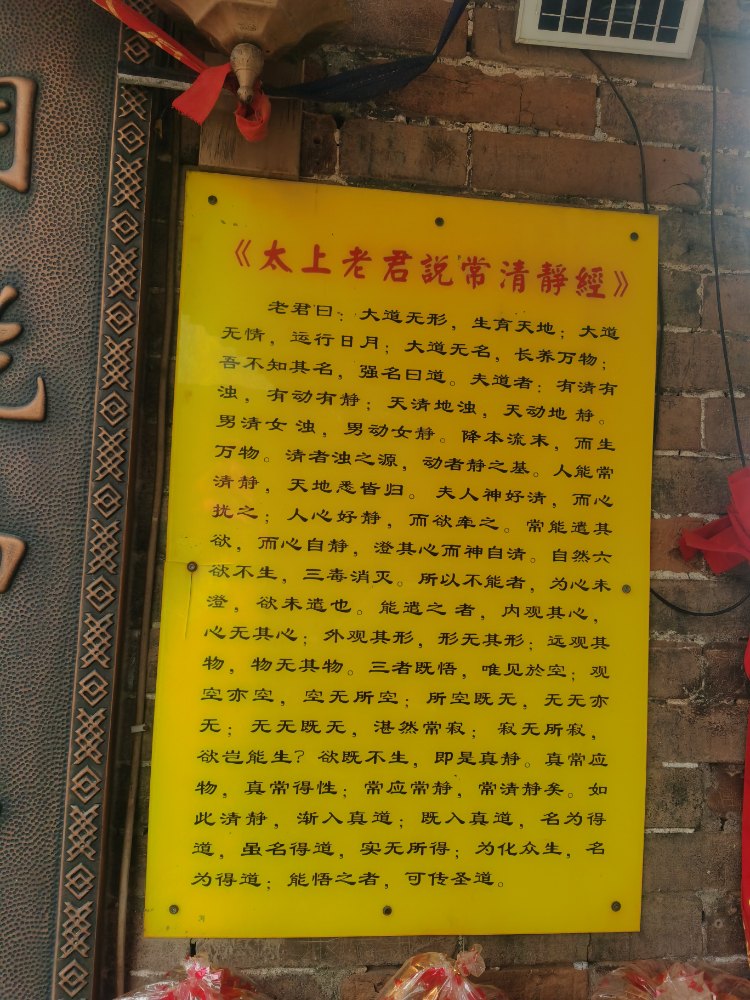 《太上老君說常清靜經》
老君曰：大道无形，生育天地；大道
无情，运行日月；大道无名，长养万物；
吾不知其名，强名曰道。夫道者：有清有
浊，有动有静；天清地浊，天动地静。
男清女浊，男动女静。降本流末，而生
万物。清者浊之源，动者静之基。人能常
清静，天地悉皆归。夫人神好清，而心
扰之；人心好静，而欲牵之。常能遣其
欲，而心自静，澄其心而神自清。自然六
欲不生，三毒消灭。所以不能者，为心未
澄，欲未遣也。能遣之者，内观其心，
心无其心；外观其形，形无其形；远观其
物，物无其物。三者既悟，唯见於空；观
空亦空，空无所空；所空既无，无无亦
无；无无既无，湛然常寂；寂无所寂，
欲岂能生？欲既不生，即是真静。真常应
物，真常得性；常应常静，常清静矣。如
此清静，渐入真道；既入真道，名为得
道，虽名得道，实无所得；为化众生，名
为得道；能悟之者，可传圣道。